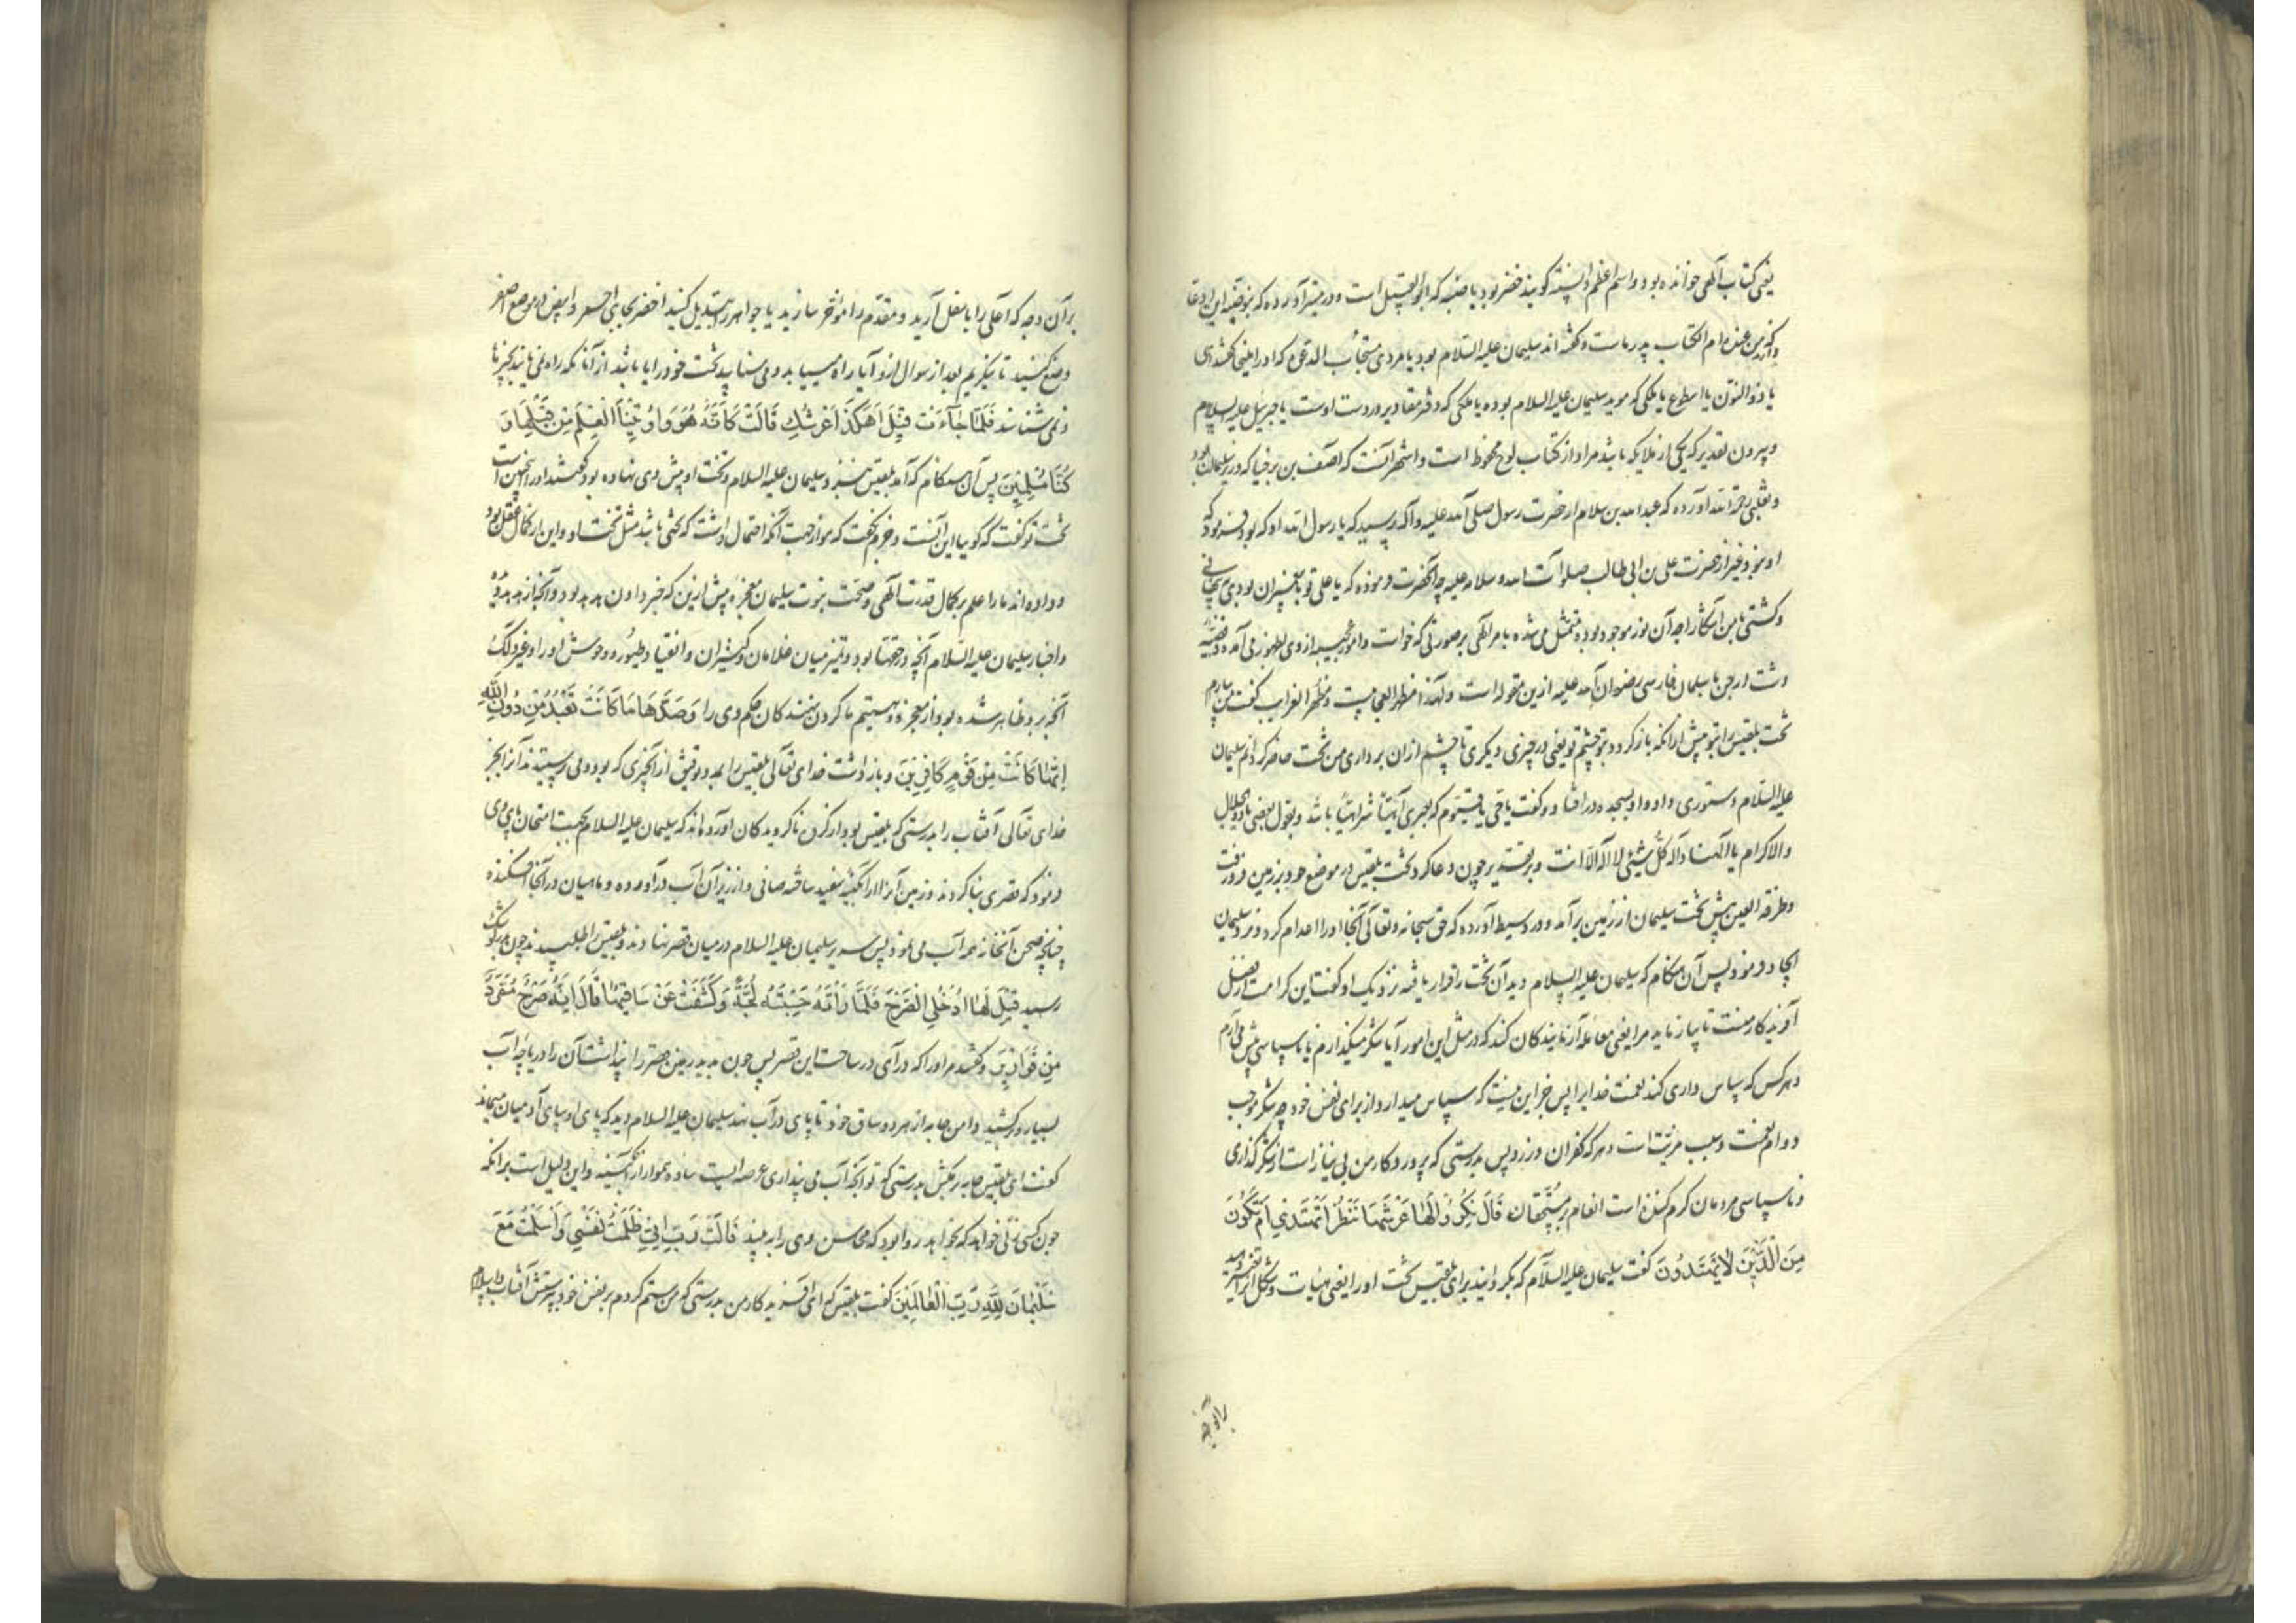 یعنی کتاب آلهی خوانده بود و اسم اعظم دانسته کویند خضر بود یا ضبه که ابو القبیل است و در تیسیر آورده که
من عنده ام الکتاب پدر ماست و کفته اند سلیمان علیه السّلام بود یا مردی مستجاب الدعوه که او را
یا ذو النون یا اسطوع یا ملکی که موید سلیمان علیه السلام بوده یا ملکی که دفتر مقادیر در دست اوست یا جبرئیل علیه السلام
و برون تقدیر که یکی از ملایکه باشد مراد از کتاب لوح محفوظ است و اشهر آنست که آصف بن برخیا که وزیر سلیمان بود
و ثعلبی رحمة الله آورده که عبد الله بن سلام از حضرت رسول صلی الله علیه و آله پرسید که یا رسول الله او که بود فرمود که
او نبود غیر از حضرت علی بن ابی طالب صلوات الله و سلامه علیه چه آنحضرت فرموده که یا علی تو با پیغمبران بودی پنهانی
و کشتی با من آشکارا چه آن نور موجود بود و متمثل می شده بامر آلهی بر صورتی که خواست و امور عجیبه از وی بظهور می آمده و قصّه
دشت ارجن با سلمان فارسی رضوان الله علیه ازین مقوله است و لهذا مظهر العجایب و مظهر الغرایب کفت من بیارم
تخت بلقیس را بتو پیش از آنکه باز کردد بتو چشم تو یعنی در چیزی دیکری تا چشم ازان برداری من تخت حاضر کردانم سلیمان
علیه السّلام دستوری داد و او بسجده در افتاد و کفت یا حی یا قیّوم که بعبری آهیّا شراهیّا باشد و بقول بعضی یا ذو الجلال
و الاکرام یا آلهنا و آله کلّ شیئی لا اله الّا انت و بر هر تقدیر چون دعا کرد تخت بلقیس در موضع خود بزمین فرو رفت
و طرفه العین پیش تخت سلیمان از زمین بر آمد و در وسیط آورده که حق سبحانه و تعالی آنجا او را اعدام کرد و نزد سلیمان
ایجاد فرمود پس آن هنکام که سلیمان علیه السلام دید آن تخت را قرار یافته نزدیک او کفت این کرامت از فضل
آفریدکار منست تا بیازماید مرا یعنی معامله آزمایندکان کند که در مثل این امور آیا شکر میکذارم یا ناسپاسی پیش می آرم
و هر کس که سپاس داری کند نعمت خدایرا پس جز این نیست که سپاس میدارد از برای نفس خود چه شکر موجب
دوام نعمت و سبب مزیّت است و هر که کفران ورزد پس بدرستی که پروردکار من بی نیاز است از شکر کذاری
و ناسپاسی مردمان کرم کننده است انعام بر مستحقان قَالَ نَكِّرُوا لَهَا عَرْشَهَا نَنْظُرْ أَتَهْتَدِي أَمْ تَكُونُ
مِنَ الَّذِينَ لَا يَهْتَدُونَ کفت سلیمان علیه السّلام که بکردانید برای بلقیس تخت او را یعنی هیات و شکل او را تغییر دهید
بر آن وجه که اعلی را باسفل آرید و مقدّم را مؤخّر سازید یا جواهر را تبدیل کنید اخضر بجای احمر و ابیض در موضع اصفر
وضع کنید تا بنکریم بعد از سوال ازو آیا راه مییابد و می شناسد تخت خود را یا باشد از آنانکه راه نمی یابند بچیزها
و نمی شناسند فَلَمَّا جَاءَتْ قِيلَ أَهَكَذَا عَرْشُكِ قَالَتْ كَأَنَّهُ هُوَ وَأُوتِينَا الْعِلْمَ مِنْ قَبْلِهَا وَ
كُنَّا مُسْلِمِينَ پس آن هنکام که آمد بلقیس نزد سلیمان علیه السلام و تخت او پیش وی نهاده بود کفتند او را آیا چنین است
تخت تو کفت که کویا این آنست و جزم نکفت که هو از جهت آنکه احتمال داشت که تختی باشد مثل تخت او و این از کمال عقل بود
و داده اند ما را علم بر کمال قدرت آلهی و صحّت نبوت سلیمان معجزه پیش ازین که خبر دادن هدهد بود و
و اخبار سلیمان علیه السّلام آنچه در حقّه بود و تمییز میان غلامان و کنیزان و انقیاد طیور و وحوش او را و غیر ذلک
آنچه برو ظاهر شده بود از معجزه و هستیم ما کردن نهندکان حکم وی را وَصَدَّهَا مَا كَانَتْ تَعْبُدُ مِنْ دُونِ اللَّهِ
إِنَّهَا كَانَتْ مِنْ قَوْمٍ كَافِرِينَ و باز داشت خدای تعالی بلقیس را بمدد توفیق از آنچیزی که بود و می پرسیتد از بجز
خدای تعالی آفتاب را بدرستی که بلقیس بود از کروه ناکرویدکان آورده اند که سلیمان علیه السلام بجهت امتحان پای وی
فرمود که قصری بنا کردند و زمین آنرا از آبکینه سفید ساخته صافی و از زیر آن آب در آورده و ماهیان در آنجا افکنده
چنانچه صحن آنخانه همه آب می نمود پس سریر سلیمان علیه السلام در میان قصر نهادند و بلقیس را طلبیدند چون بدر کوشک
رسید قِيلَ لَهَا ادْخُلِي الصَّرْحَ فَلَمَّا رَأَتْهُ حَسِبَتْهُ لُجَّةً وَكَشَفَتْ عَنْ سَاقَيْهَا قَالَ إِنَّهُ صَرْحٌ مُمَرَّدٌ
مِنْ قَوَارِيرَ کفتند مر او را که در آی در ساحت این قصر پس چون بدید زمین قصر را پنداشت آن را دریاچه آب
بسیار و برکشید دامن جامه از هر دو ساق خود تا پای در آب نهد سلیمان علیه السلام دید که پای او بپای آدمیان میماند
کفت ای بلقیس جامه بر مکش بدرستی که تو آنچه آب می پنداری عرصه ایست ساده هموار از آبکینه و این دلیل است بر آنکه
چون کسی زنی خواهد که بخواهد روا بود که محاسن وی را به بیند قَالَتْ رَبِّ إِنِّي ظَلَمْتُ نَفْسِي وَأَسْلَمْتُ مَعَ
سُلَيْمَانَ لِلَّهِ رَبِّ الْعَالَمِينَ کفت بلقیس که ای آفریدکار من بدرستی که من ستم کردم بر نفس خود بپرستش آفتاب و اسلام